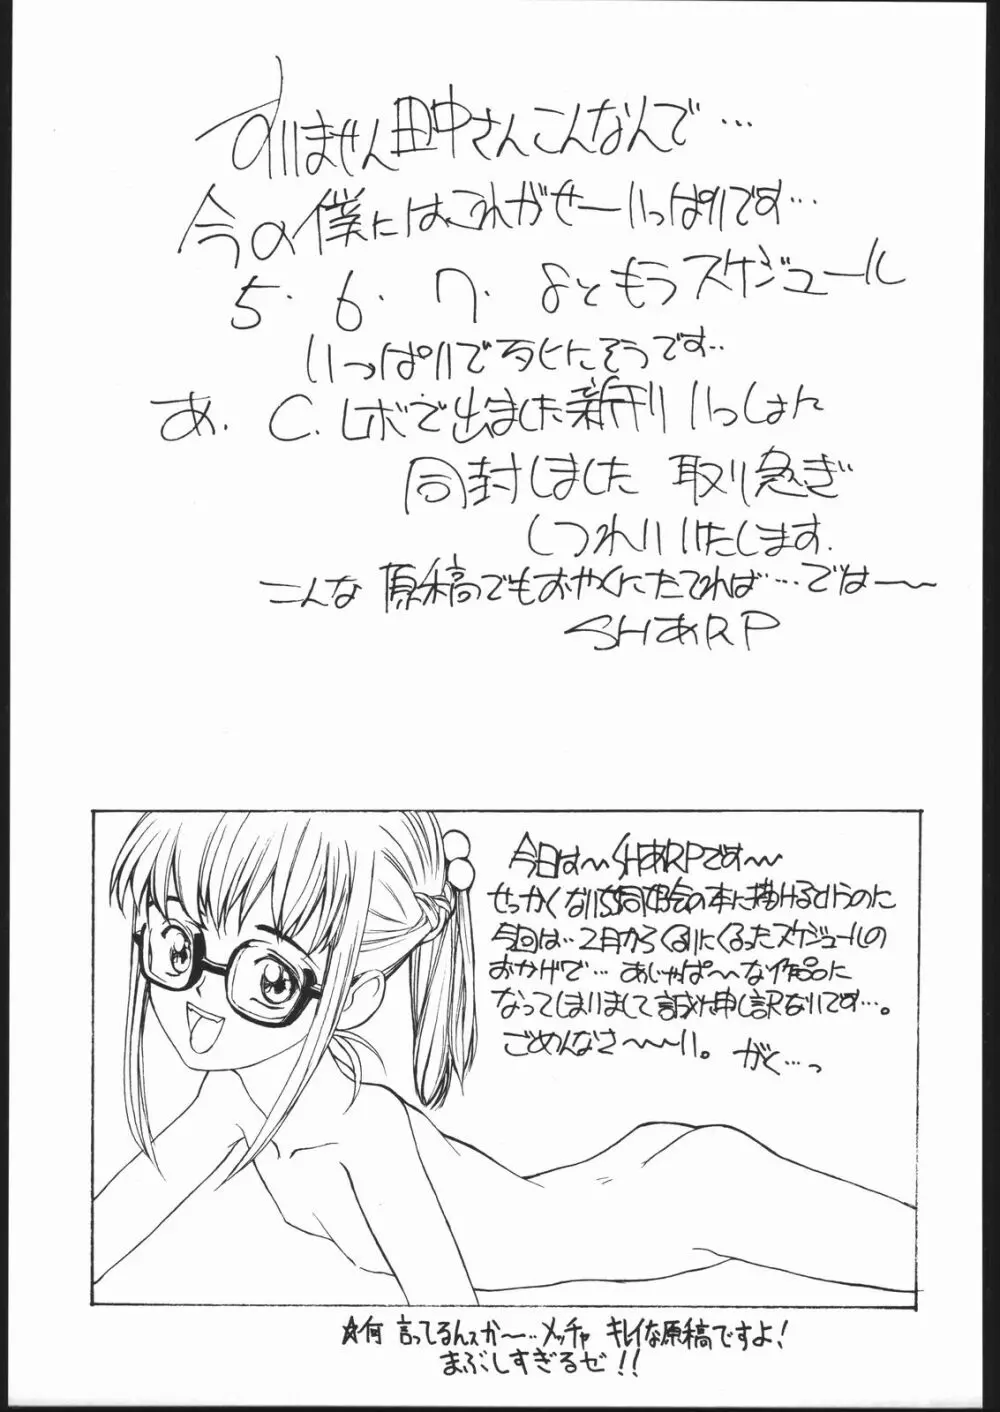 すいません田中さんこんなんで…
今の僕にはこれがせーいっぱいです…
5.6.7.8ともうスケジュール
いっぱいで死にそうです..
あ.C.レボで出ました新刊いっしょに
同封しました 取り急ぎ
しつれいいたします.
こんな原稿でもおやくにたてれば…では〜
SHあRP
今日は〜SHあRPです〜
せっかくないち同他絵の本に描けるというのに
今回は..2月からくるいにくるったスケジュールの
おかげで…あじゃぱ〜な作品に
なってしまいまして誠に申し訳ないです…。
ごめんなさ〜〜い。がく…っ
☆何 言ってるんスか〜..メッチャ キレイな原稿ですよ!
まぶしすぎるゼ!!